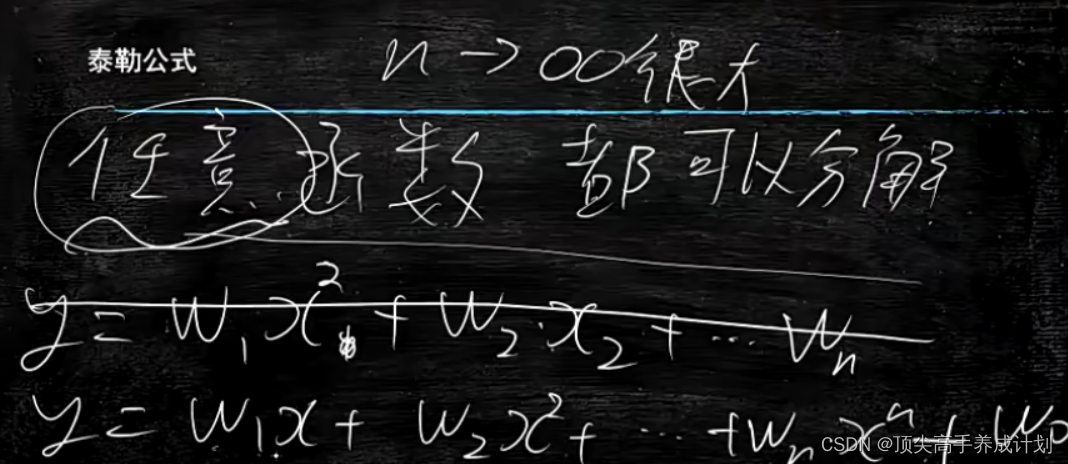 泰勒公式
n → ∞ 很大
任意函数 都可以分解
y = w₁x² + w₂x₂ + ... wₙ
y = w₁x + w₂x² + ... + wₙxⁿ + w₀
CSDN @顶尖高手养成计划